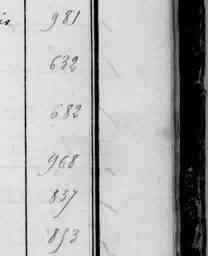 is
981
632
682
968
837
853